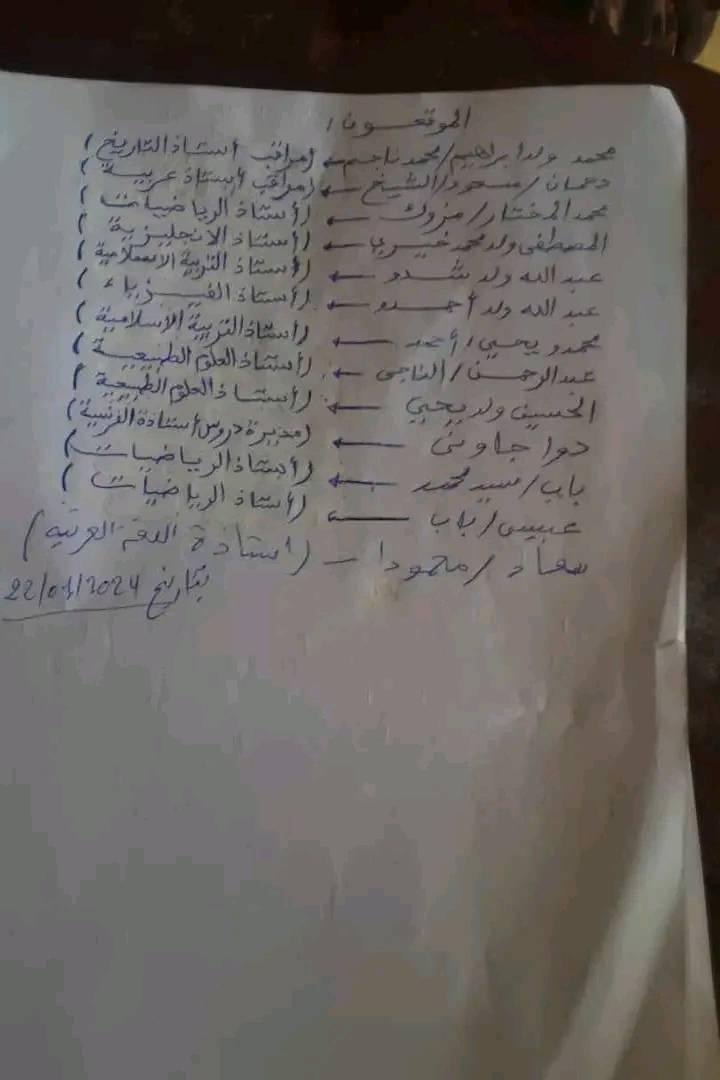 الموقعون:
محمد ولد ابراهيم/محمد ناجم ← (مراقب أستاذ التاريخ)
دحمان/مسعود/الشيخ ← (مراقب أستاذ عربية)
محمد المختار/مزوك ← (أستاذ الرياضيات)
المصطفى ولد محمد خيري ← (أستاذ الانجليزية)
عبد الله ولد شدو ← (أستاذ التربية الاسلامية)
عبد الله ولد أحمدو ← (أستاذ الفيزياء)
محمدو يحيى/أحمد ← (أستاذ التربية الاسلامية)
عبد الرحمن/الناجي ← (أستاذ العلوم الطبيعية)
الحسين ولد يحيى ← (أستاذ العلوم الطبيعية)
دوا جاوني ← (مديرة دروس أستاذة الفرنسية)
باب/سيد محمد ← (أستاذ الرياضيات)
عبيسى/باب ← (أستاذ الرياضيات)
سعاد/محمودا – (استاذة اللغة العربية)
بتاريخ 22/01/2024